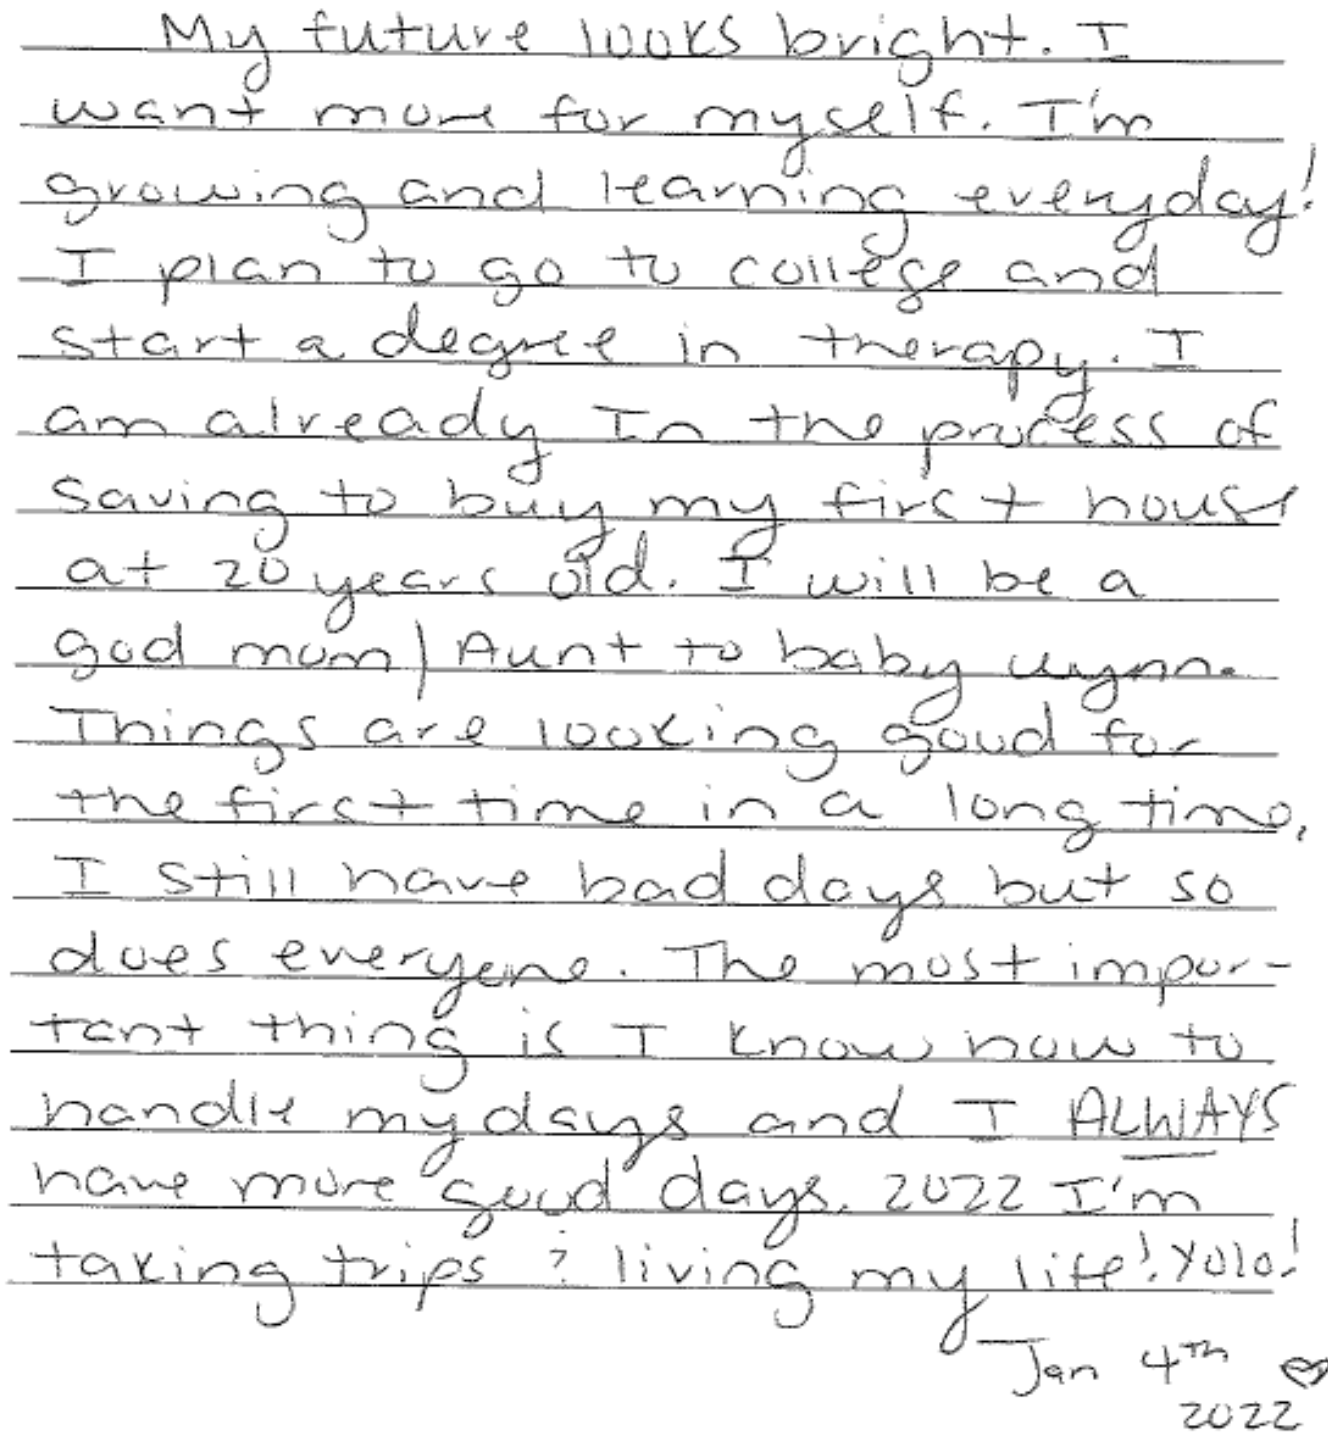 My future looks bright. I
want more for myself. I'm
growing and learning everyday!
I plan to go to college and
start a degree in therapy. I
am already In the process of
saving to buy my first house
at 20 years old. I will be a
god mom/Aunt to baby wynn.
Things are looking good for
the first time in a long time.
I still have bad days but so
does everyone. The most impor-
tant thing is I know how to
handle my days and I ALWAYS
have more good days. 2022 I'm
taking trips & living my life! Yolo!
Jan 4th ♡
2022